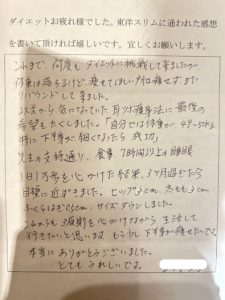 ダイエットお疲れ様でした。東洋スリムに通われた感想
を書いて頂ければ嬉しいです。宜しくお願いします。
これまで何度もダイエットに挑戦して来ましたが
体重は落ちるけど、痩せてほしい所は痩せずまた
リバウンドして来ました。
以前から、気になっていた耳ツボ痩身法に最後の
希望をたくしました。「自分では体重が、49~50kg
特に下半身が細くなったら成功」
先生の支持通り、食事、7時間以上の睡眠
1日1万歩を心がけた結果、3ヶ月過ぎた今
目標に近ずきました。ヒップ3cm、太もも3cm
ふくらはぎ0.5cm、サイズダウンしました。
これからも3原則を心がけながら生活して
行きたいと思います もう少し下半身が痩せたいです。
本当にありがとうございました。
とてもうれしいです。